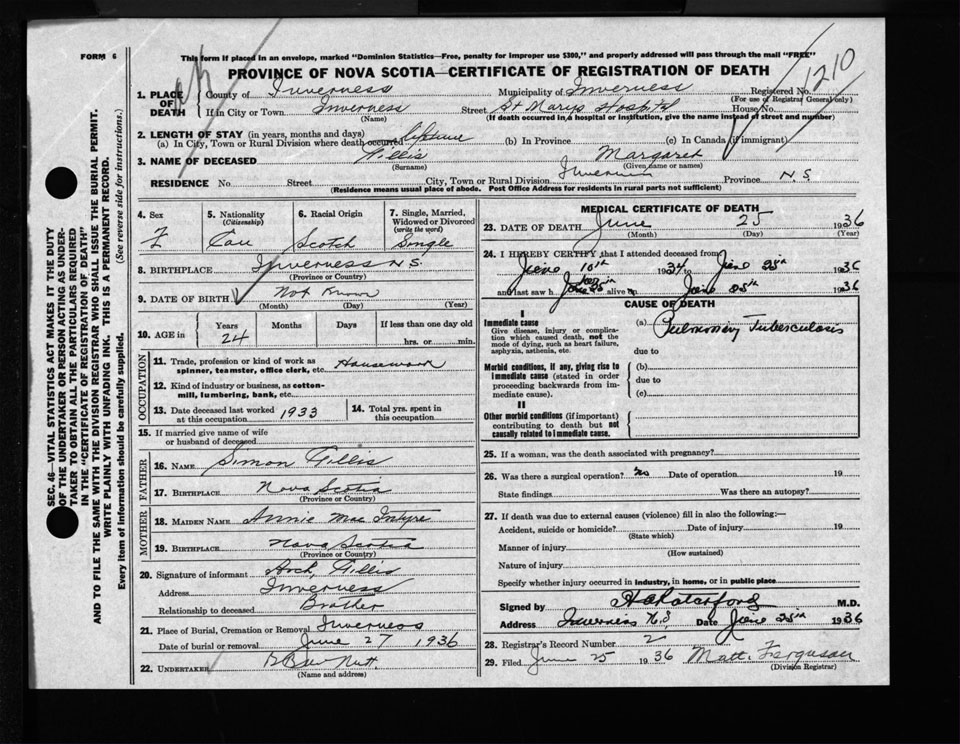 FORM 6
This form if placed in an envelope, marked "Dominion Statistics—Free, penalty for improper use $300," and properly addressed will pass through the mail "FREE"
PROVINCE OF NOVA SCOTIA—CERTIFICATE OF REGISTRATION OF DEATH
1210
1. PLACE OF DEATH
County of Inverness Municipality of Inverness Registered No.
(For use of Registrar General only)
If in City or Town Inverness Street St Marys Hospital House No.
(Name) (If death occurred in a hospital or institution, give the name instead of street and number)
2. LENGTH OF STAY (in years, months and days)
(a) In City, Town or Rural Division where death occurred lifetime (b) In Province (c) In Canada (if immigrant)
3. NAME OF DECEASED Gillis Margaret
(Surname) (Given name or names)
RESIDENCE No Street City, Town or Rural Division Inverness Province N.S.
(Residence means usual place of abode. Post Office Address for residents in rural parts not sufficient)
4. Sex F
5. Nationality (Citizenship) Can
6. Racial Origin Scotch
7. Single, Married, Widowed or Divorced (write the word) Single
8. BIRTHPLACE Inverness N.S.
(Province or Country)
9. DATE OF BIRTH Not Known
(Month) (Day) (Year)
10. AGE in Years Months Days If less than one day old
24 hrs. or min.
OCCUPATION
11. Trade, profession or kind of work as spinner, teamster, office clerk, etc. Housework
12. Kind of industry or business, as cotton-mill, lumbering, bank, etc.
13. Date deceased last worked at this occupation 1933
14. Total yrs. spent in this occupation
15. If married give name of wife or husband of deceased
FATHER
16. NAME Simon Gillis
17. BIRTHPLACE Nova Scotia
(Province or Country)
MOTHER
18. MAIDEN NAME Annie Mac Intyre
19. BIRTHPLACE Nova Scotia
(Province or Country)
20. Signature of informant Arch, Gillis
Address Inverness
Relationship to deceased Brother
21. Place of Burial, Cremation or Removal Inverness
Date of burial or removal June 27 1936
22. UNDERTAKER
(Name and address)
MEDICAL CERTIFICATE OF DEATH
23. DATE OF DEATH June 25 1936
(Month) (Day) (Year)
24. I HEREBY CERTIFY that I attended deceased from
June 1934 to June 25th 1936
and last saw her alive on June 25th 1936
CAUSE OF DEATH
I
Immediate cause
Give disease, injury or complication which caused death, not the mode of dying, such as heart failure, asphyxia, asthenia, etc.
(a) Pulmonary Tuberculosis
due to
Morbid conditions, if any, giving rise to immediate cause (stated in order proceeding backwards from immediate cause).
(b)
due to
(c)
II
Other morbid conditions (if important) contributing to death but not causally related to immediate cause.
25. If a woman, was the death associated with pregnancy?
26. Was there a surgical operation? No Date of operation 19
State findings Was there an autopsy?
27. If death was due to external causes (violence) fill in also the following:—
Accident, suicide or homicide? Date of injury 19
(State which)
Manner of injury
(How sustained)
Nature of injury
Specify whether injury occurred in industry, in home, or in public place
Signed by M.D.
Address Inverness N.S, Date June 25th 1936
28. Registrar's Record Number 2
29. Filed June 25 1936 Matt. Ferguson
(Division Registrar)
SEC. 46—VITAL STATISTICS ACT MAKES IT THE DUTY
OF THE UNDERTAKER OR PERSON ACTING AS UNDER-
TAKER TO OBTAIN ALL THE PARTICULARS REQUIRED
IN THE "CERTIFICATE OF REGISTRATION OF DEATH"
AND TO FILE THE SAME WITH THE DIVISION REGISTRAR WHO SHALL ISSUE THE BURIAL PERMIT.
WRITE PLAINLY WITH UNFADING INK. THIS IS A PERMANENT RECORD.
Every item of information should be carefully supplied. (See reverse side for instructions.)